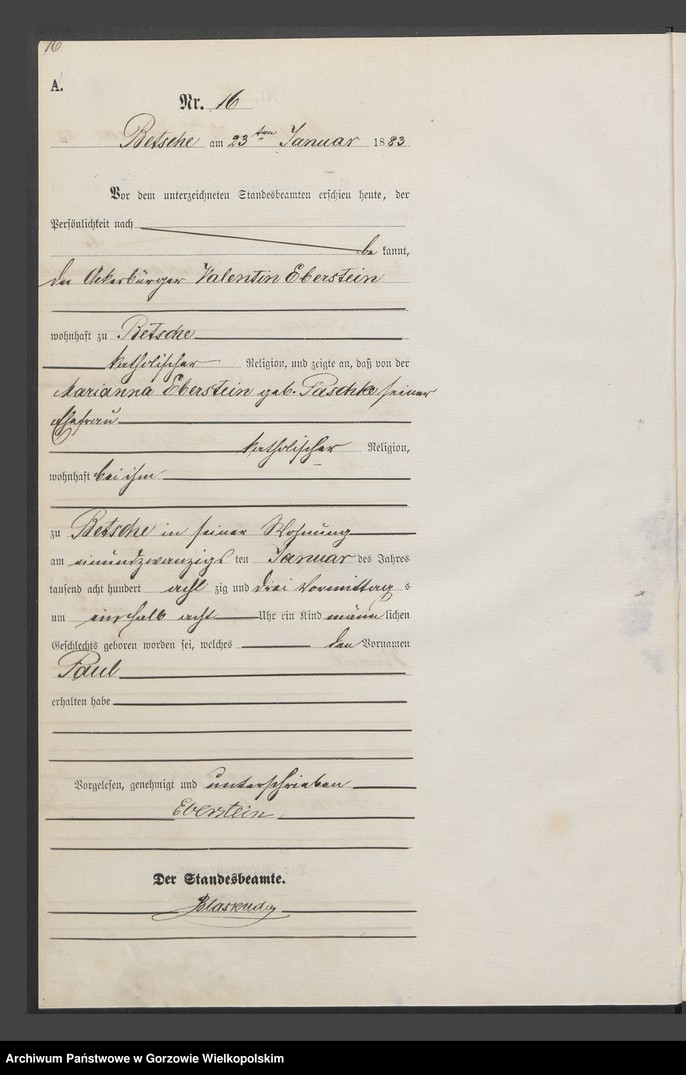 16
A.
Nr. 16
Betsche am 23ten Januar 1883
Vor dem unterzeichneten Standesbeamten erschien heute, der
Persönlichkeit nach
be kannt,
der Ackerbürger Valentin Eberstein
wohnhaft zu Betsche
katholischer Religion, und zeigte an, daß von der
Marianna Eberstein geb. Paschke seiner
Ehefrau
katholischer Religion,
wohnhaft bei ihm
zu Betsche in seiner Wohnung
am einundzwanzigs ten Januar des Jahres
tausend acht hundert acht zig und drei Vormittag s
um einhalb acht Uhr ein Kind männ lichen
Geschlechts geboren worden sei, welches den Vornamen
Paul
erhalten habe
Vorgelesen, genehmigt und unterschrieben
Eberstein
Der Standesbeamte.
Archiwum Państwowe w Gorzowie Wielkopolskim